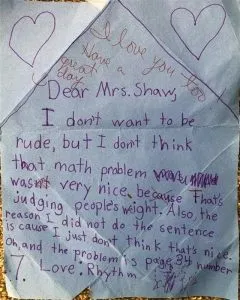 I love you too
Have a
great
day
Dear Mrs. Shaw,
I don't want to be
rude, but I don't think
that math problem
wasn't very nice because That's
judging people's weight. Also, the
reason I did not do the sentence
is cause I just don't think that's nice.
Oh, and the problem is page 34 number
7. Love: Rhythm